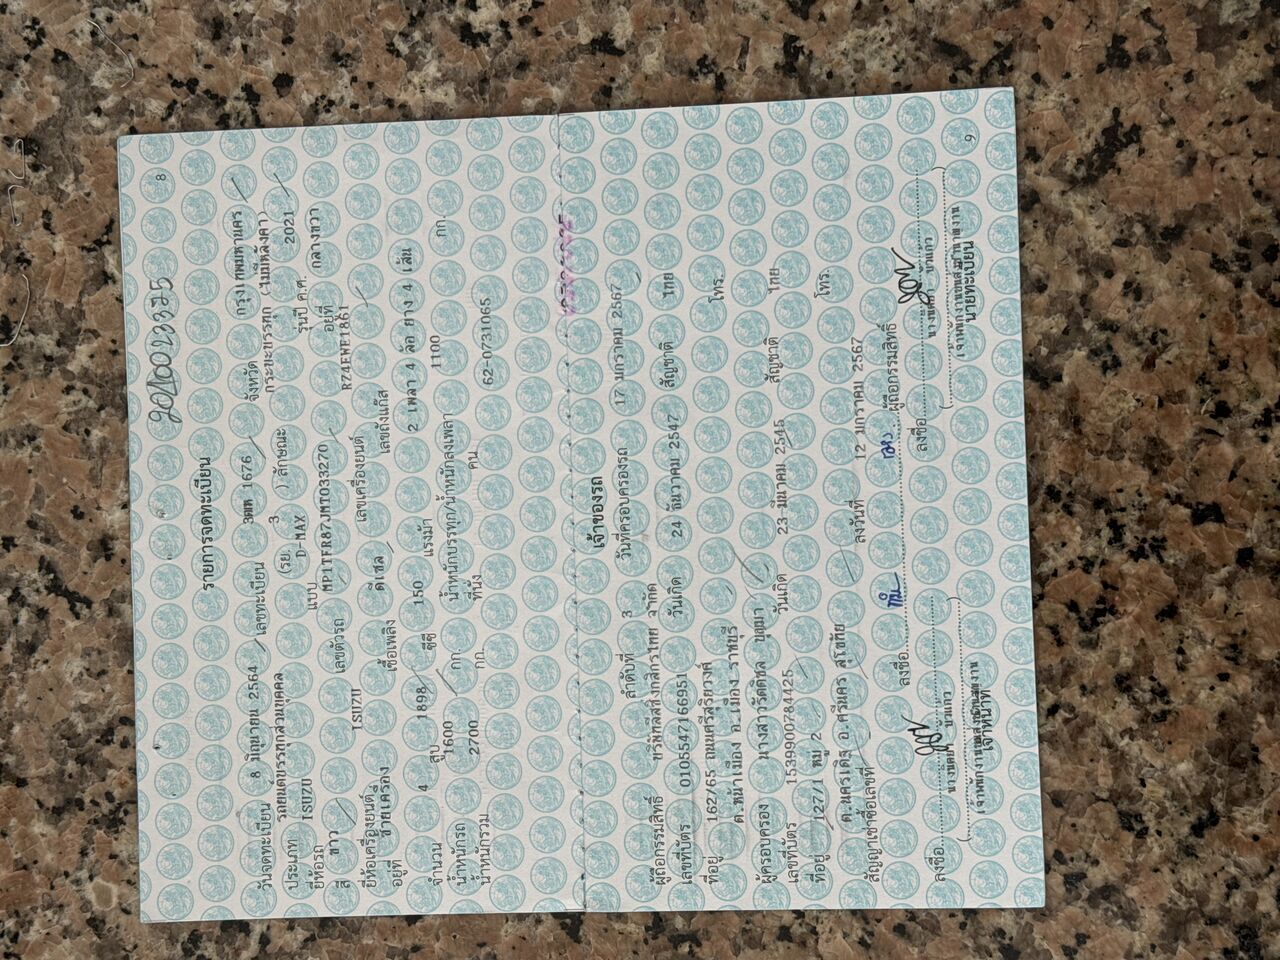 8
รายการจดทะเบียน
วันจดทะเบียน 8 มิถุนายน 2564 เลขทะเบียน 3ฒฬ 1676 จังหวัด กรุงเทพมหานคร
ประเภท รถยนต์บรรทุกส่วนบุคคล (รย. 3 ) ลักษณะ กระบะบรรทุก (ไม่มีหลังคา)
ยี่ห้อรถ ISUZU แบบ D-MAX รุ่นปี ค.ศ. 2021
สี ขาว เลขตัวรถ MP1TFR87JMT033270 อยู่ที่ กลางขวา
ยี่ห้อเครื่องยนต์ ISUZU เลขเครื่องยนต์ RZ4EWE1861
อยู่ที่ ซ้ายเครื่อง เชื้อเพลิง ดีเซล เลขถังแก๊ส
จำนวน 4 สูบ 1898 ซีซี 150 แรงม้า 2 เพลา 4 ล้อ ยาง 4 เส้น
น้ำหนักรถ 1600 กก. น้ำหนักบรรทุก/น้ำหนักลงเพลา 1100 กก.
น้ำหนักรวม 2700 กก. ที่นั่ง คน 62-0731065
เจ้าของรถ
ลำดับที่ 3 วันที่ครอบครองรถ 17 มกราคม 2567
ผู้ถือกรรมสิทธิ์ จำกัด
เลขที่บัตร 0105547166951 วันเกิด 24 ธันวาคม 2547 สัญชาติ ไทย
ที่อยู่ 162/65 ถนนศรีสุริยวงศ์
ต.หน้าเมือง อ.เมือง ราชบุรี โทร.
ผู้ครอบครอง
เลขที่บัตร 1539900784425 วันเกิด 23 มีนาคม 2545 สัญชาติ ไทย
ที่อยู่ 127/1 หมู่ 2
ต.นครเดิฐ อ.ศรีนคร สุโขทัย โทร.
สัญญาเช่าซื้อเลขที่ ลงวันที่ 12 มกราคม 2567
ลงชื่อ ผู้ถือกรรมสิทธิ์
ลงชื่อ ลงชื่อ
เจ้าหน้าที่ นายทะเบียน
9